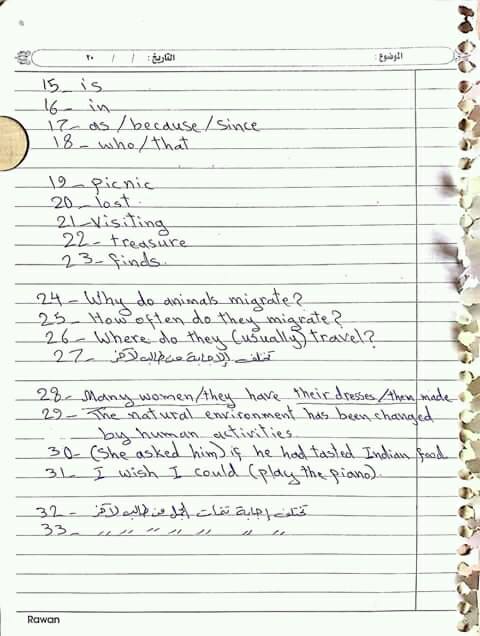 الموضوع: التاريخ: / / ٢٠
15- is
16- in
17- as/because/since
18- who/that
19- picnic
20- lost.
21- Visiting
22- treasure
23- finds.
24- Why do animals migrate?
25- How often do they migrate?
26- Where do they (usually) travel?
27- تختلف الإجابة من طالب لآخر
28- Many women/they have their dresses/them made
29- The natural environment has been changed
by human activities.
30- (She asked him) if he had tasted Indian food
31- I wish I could (play the piano).
32- تختلف إجابة من طالب لآخر
33- ,, ,, ,, ,, ,, ,, ,,
Rawan